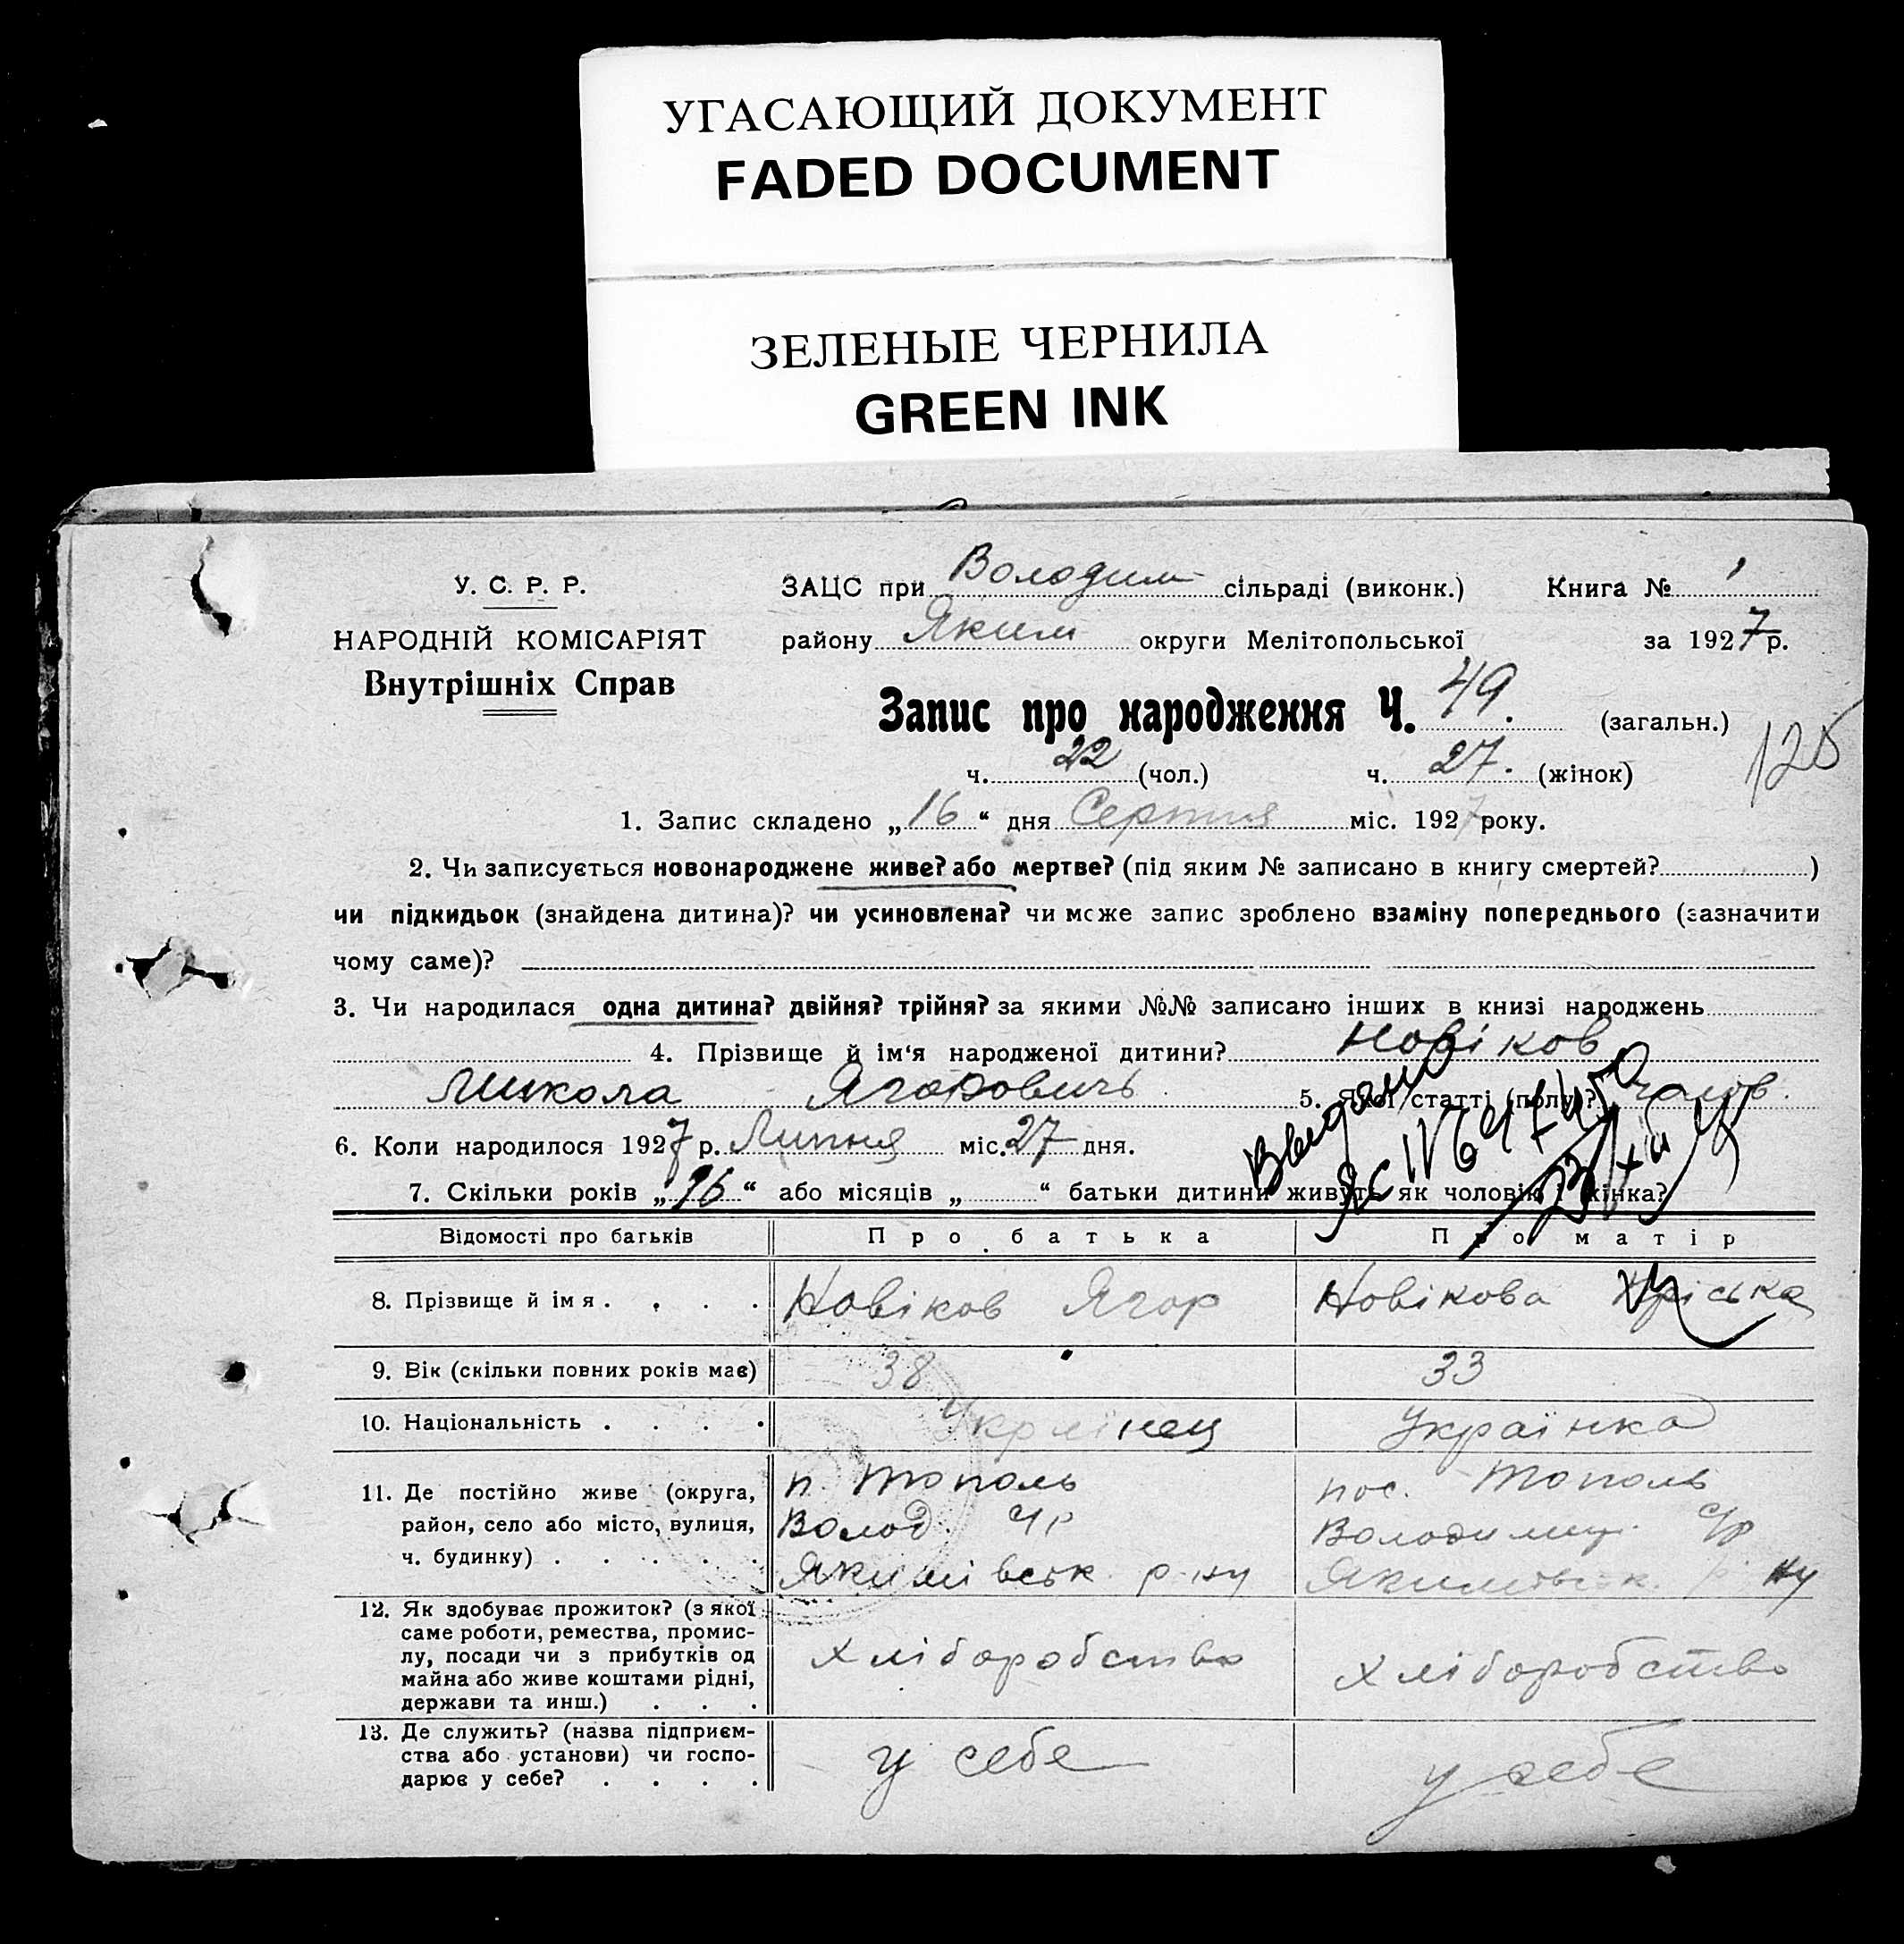 УГАСАЮЩИЙ ДОКУМЕНТ
FADED DOCUMENT
ЗЕЛЕНЫЕ ЧЕРНИЛА
GREEN INK
У. С. Р. Р.
НАРОДНІЙ КОМІСАРІЯТ
Внутрішніх Справ
ЗАЦС при Володим сільраді (виконк.) Книга № 1
району Яким округи Мелітопольської за 1927 р.
Запис про народження Ч. 49. (загальн.)
ч. 22 (чол.) ч. 27. (жінок)
125
1. Запис складено „16“ дня Серпня міс. 1927 року.
2. Чи записується новонароджене живе? або мертве? (під яким № записано в книгу смертей? )
чи підкидьок (знайдена дитина)? чи усиновлена? чи може запис зроблено взаміну попереднього (зазначити
чому саме)?
3. Чи народилася одна дитина? двійня? трійня? за якими №№ записано інших в книзі народжень
4. Прізвище й ім‘я народженої дитини? Новіков
Микола Ягорович 5. Якої статті (полу)? чолов.
6. Коли народилося 1927 р. Липня міс. 27 дня.
7. Скільки років „16“ або місяців „ “ батьки дитини живуть як чоловік і жінка?
Відомості про батьків Про батька Про матір
8. Прізвище й ім я . . . . Новіков Ягор Новікова Пріська
9. Вік (скільки повних років має) 38 33
10. Національність . . . . Українец Українка
11. Де постійно живе (округа, п. Тополь пос. Тополь
район, село або місто, вулиця, Волод. с/р Володимир. с/р
ч. будинку) . . . . . Якимівськ. р-ну Якимівськ. р-ну
12. Як здобуває прожиток? (з якої
саме роботи, ремества, промис-
лу, посади чи з прибутків од хліборобство хліборобство
майна або живе коштами рідні,
держави та инш.) . . .
13. Де служить? (назва підприєм-
ства або установи) чи госпо- у себе у себе
дарює у себе? . . . .